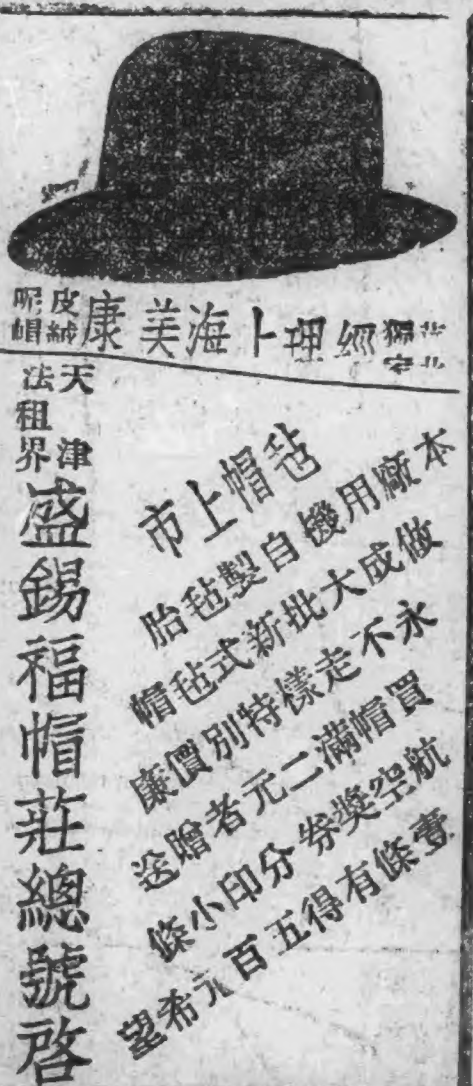 華北
獨家
經理上海美康
皮絨
呢帽
毡帽上市
本廠用機自製毡胎
做成大批新式毡帽
永不走樣特別價廉
買帽滿二元者贈送
航空獎券分印小條
壹條有得五百元希望
天津
法租界
盛錫福帽莊總號啓